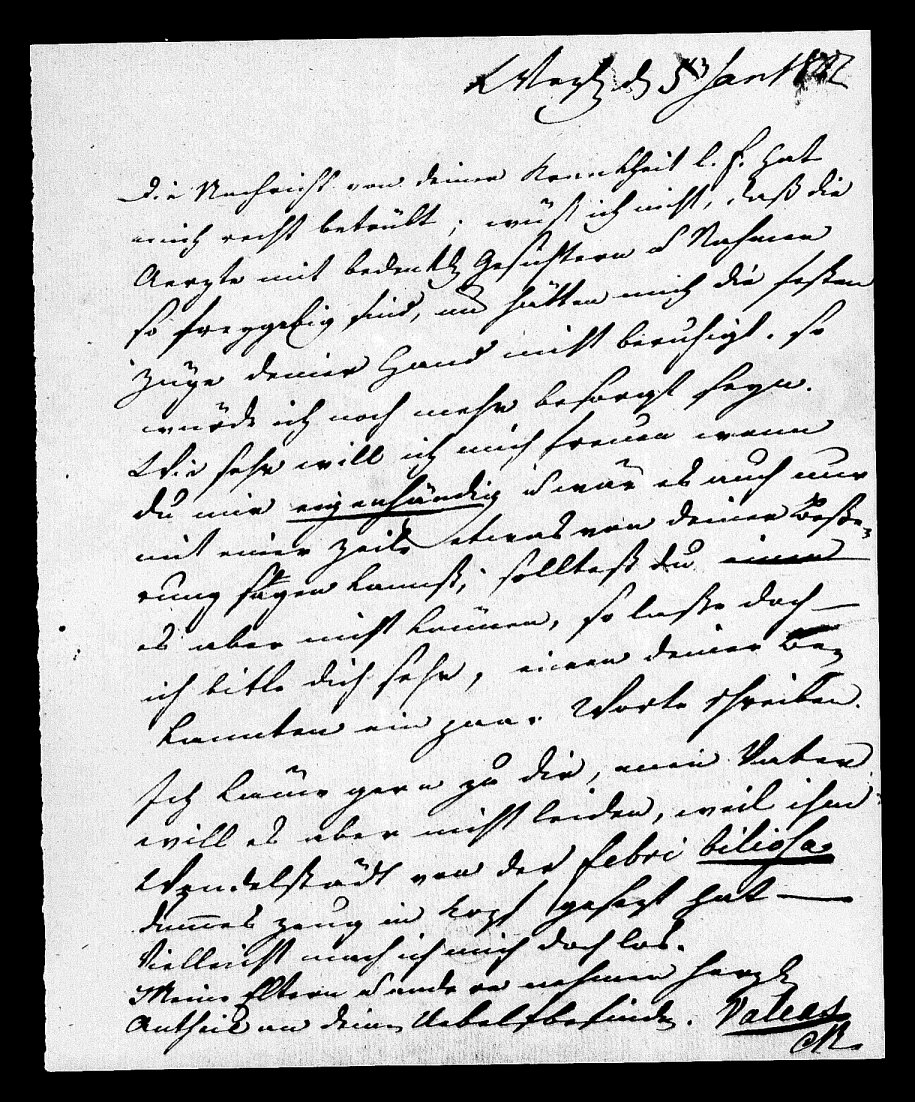 d 5ᵗ Jan 1802
Die Nachricht von deiner Krankheit l. F. hat
mich recht betrübt; wüst ich nicht, daß die
Aerzte mit bedenkl Gesichtern u Nahmen
so freygebig sind, und hätten mich die festen
Züge deiner Hand nicht beruhigt, so
würde ich noch mehr besorgt seyn.
Wie sehr will ich mich freuen wenn
du mir eigenhändig u wär es auch nur
mit einer Zeile etwas von deiner Beße-
rung sagen kannst; solltest du einen
es aber nicht können, so laße doch —
ich bitte dich sehr, einen deiner Be-
kannten ein paar Worte schreiben.
Ich käme gern zu dir, mein Vater
will es aber nicht leiden, weil ihm
Wendelstädt von der febri biliosa
dummes Zeug in Kopf gesezt hat —
Vielleicht mach ich mich doch los.
Meine Eltern u andere nehmen herzl
Antheil an deinem Uebelbefinden. Valeas